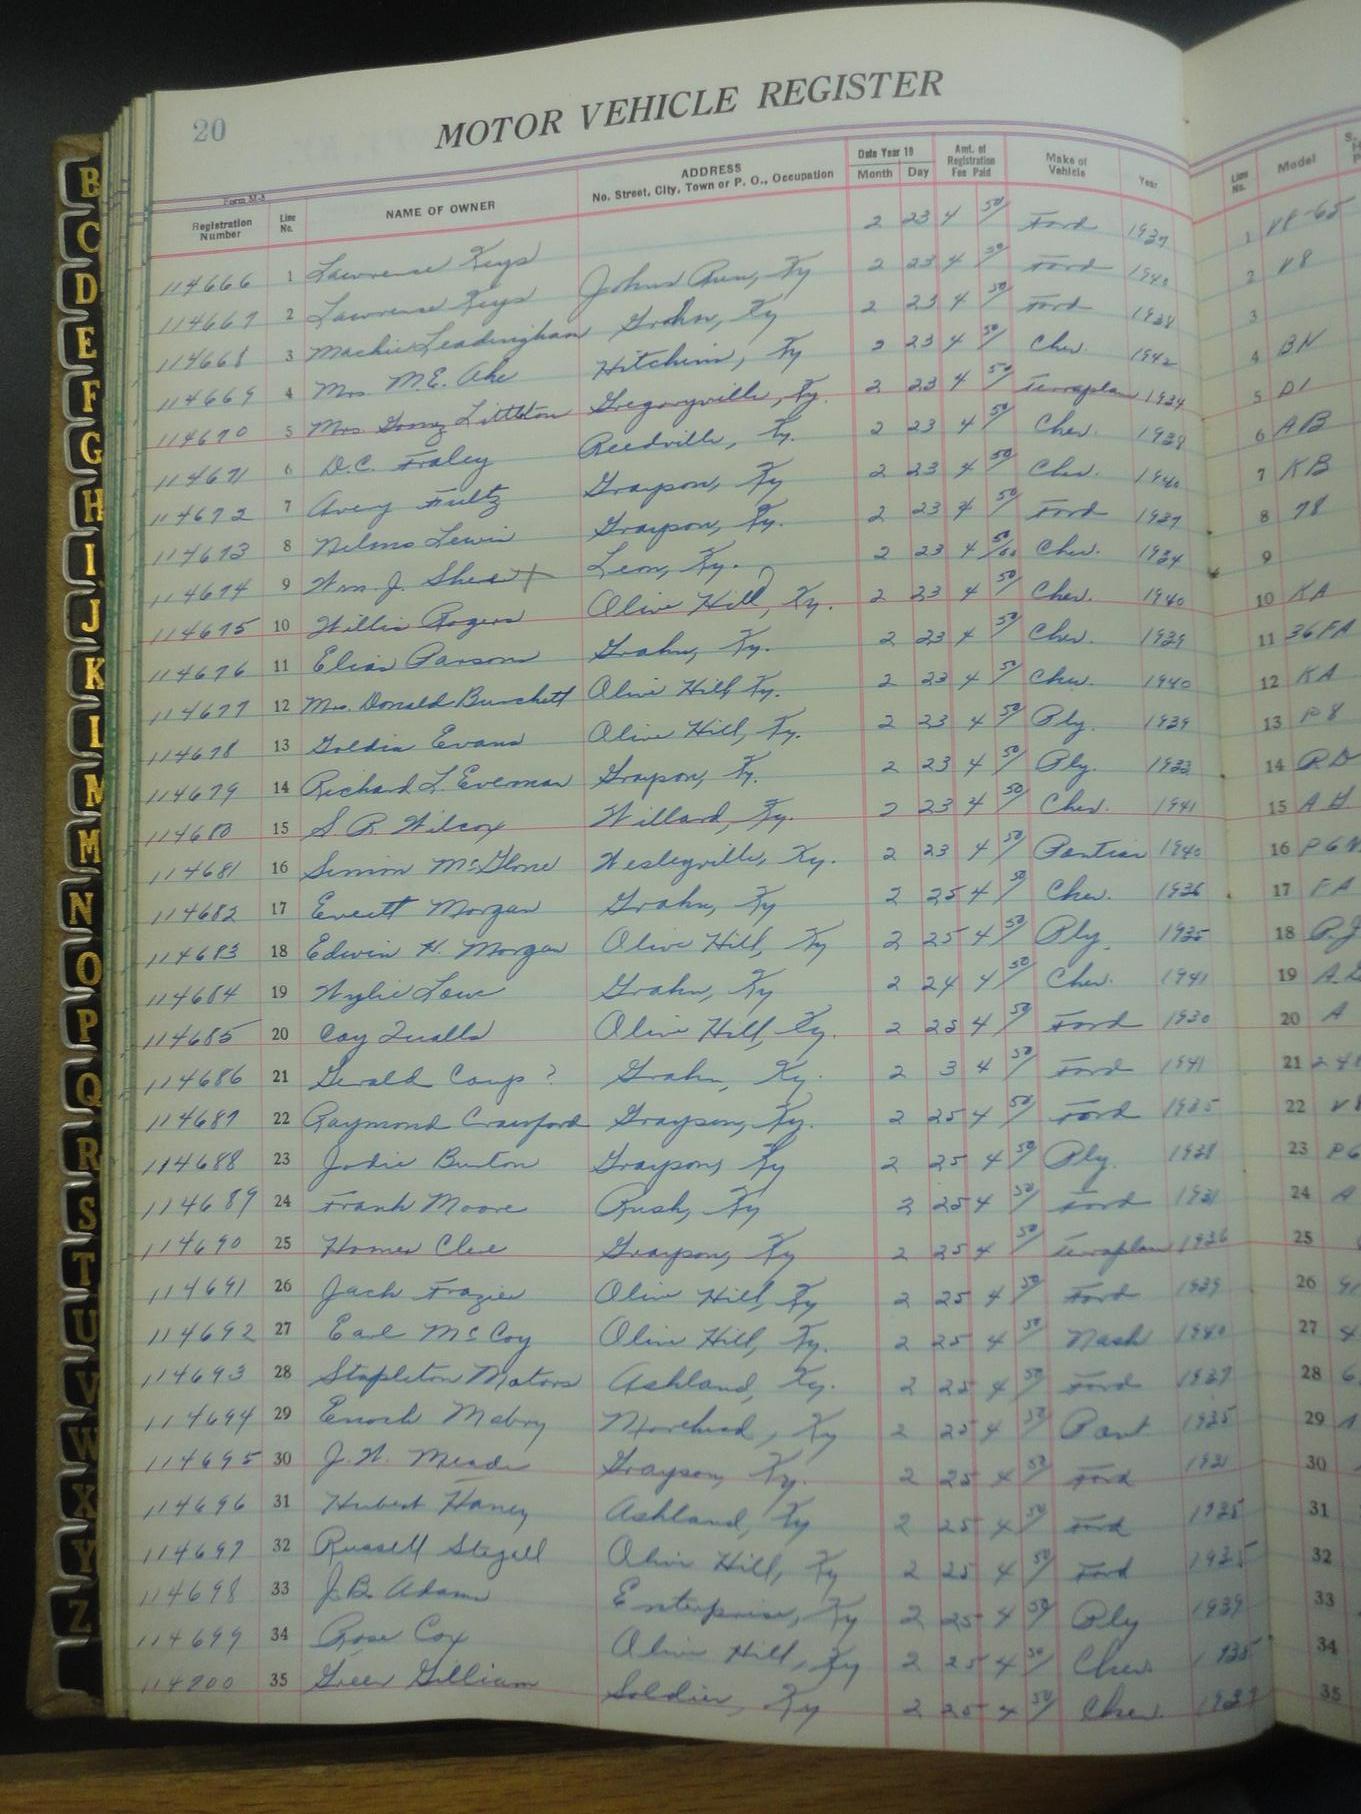 20
MOTOR VEHICLE REGISTER
Form M-3
Registration Number Line No. NAME OF OWNER ADDRESS No. Street, City, Town or P. O., Occupation Date Year 19 Month Day Amt. of Registration Fee Paid Make of Vehicle Year Line No. Model
114666 1 Lawrence Keys 2 23 4 50/ Ford 1937 1 V8-65
114667 2 Lawrence Keys Johns Run, Ky 2 23 4 50/ Ford 1940 2 V8
114668 3 Mackie Leadingham Grahn, Ky 2 23 4 50/ Ford 1938 3
114669 4 Mrs. M.E. Ake Hitchins, Ky 2 23 4 50/ Chev. 1942 4 BH
114670 5 Mrs. Littleton Gregoryville, Ky. 2 23 4 50/ Terraplane 1934 5 D1
114671 6 D.C. Fraley Reedville, Ky. 2 23 4 50/ Chev. 1938 6 AB
114672 7 Avery Fultz Grayson, Ky 2 23 4 50/ Chev. 1940 7 KB
114673 8 Lewis Grayson, Ky. 2 23 4 50/ Ford 1937 8 78
114674 9 Wm. J. Shea Leon, Ky. 2 23 4 50/ Chev. 1934 9
114675 10 Willis Rogers Olive Hill, Ky. 2 23 4 50/ Chev. 1940 10 KA
114676 11 Elias Parsons Grahn, Ky. 2 23 4 50/ Chev. 1939 11 36FA
114677 12 Mrs. Donald Burchett Olive Hill Ky. 2 23 4 50/ Chev. 1940 12 KA
114678 13 Goldia Evans Olive Hill, Ky. 2 23 4 50/ Ply. 1939 13 P8
114679 14 Richard L. Everman Grayson, Ky. 2 23 4 50/ Ply. 1933 14 PD
114680 15 S R Wilcox Willard, Ky. 2 23 4 50/ Chev. 1941 15
114681 16 Simon McGlone Wesleyville, Ky. 2 23 4 50/ Pontiac 1940 16
114682 17 Everett Morgan Grahn, Ky 2 25 4 50/ Chev. 1936 17 FA
114683 18 Edwin H. Morgan Olive Hill, Ky 2 25 4 50/ Ply. 1935 18 PJ
114684 19 Wylie Lowe Grahn, Ky 2 24 4 50/ Chev. 1941 19
114685 20 Coy Qualls Olive Hill, Ky. 2 25 4 50/ Ford 1930 20 A
114686 21 Gerald Camp ? Grahn, Ky. 2 3 4 50/ Ford 1941 21
114687 22 Raymond Crawford Grayson, Ky. 2 25 4 50/ Ford 1935 22
114688 23 Jodie Burton Grayson, Ky 2 25 4 50/ Ply. 1938 23
114689 24 Frank Moore Rush, Ky 2 25 4 50/ Ford 1931 24 A
114690 25 Homer Grayson, Ky 2 25 4 50/ Terraplane 1936 25
114691 26 Jack Frazier Olive Hill, Ky 2 25 4 50/ Ford 1939 26
114692 27 Earl McCoy Olive Hill, Ky. 2 25 4 50/ Nash 1940 27
114693 28 Stapleton Motors Ashland, Ky. 2 25 4 50/ Ford 1937 28
114694 29 Enoch Mabry Morehead, Ky 2 25 4 50/ Pont. 1935 29
114695 30 J.W. Meade Grayson, Ky. 2 25 4 50/ Ford 1931 30
114696 31 Hubert Haney Ashland, Ky 2 25 4 50/ Ford 1935 31
114697 32 Russell Stegall Olive Hill, Ky 2 25 4 50/ Ford 1935 32
114698 33 J.B. Adams Enterprise, Ky 2 25 4 50/ Ply 1939 33
114699 34 Rose Cox Olive Hill, Ky 2 25 4 50/ Chev 1935 34
114700 35 Greer Gilliam Soldier, Ky 2 25 4 50/ Chev. 1937 35
B
C
D
E
F
G
H
I
J
K
L
M
M
N
O
P
Q
R
S
T
U
V
W
X
Y
Z